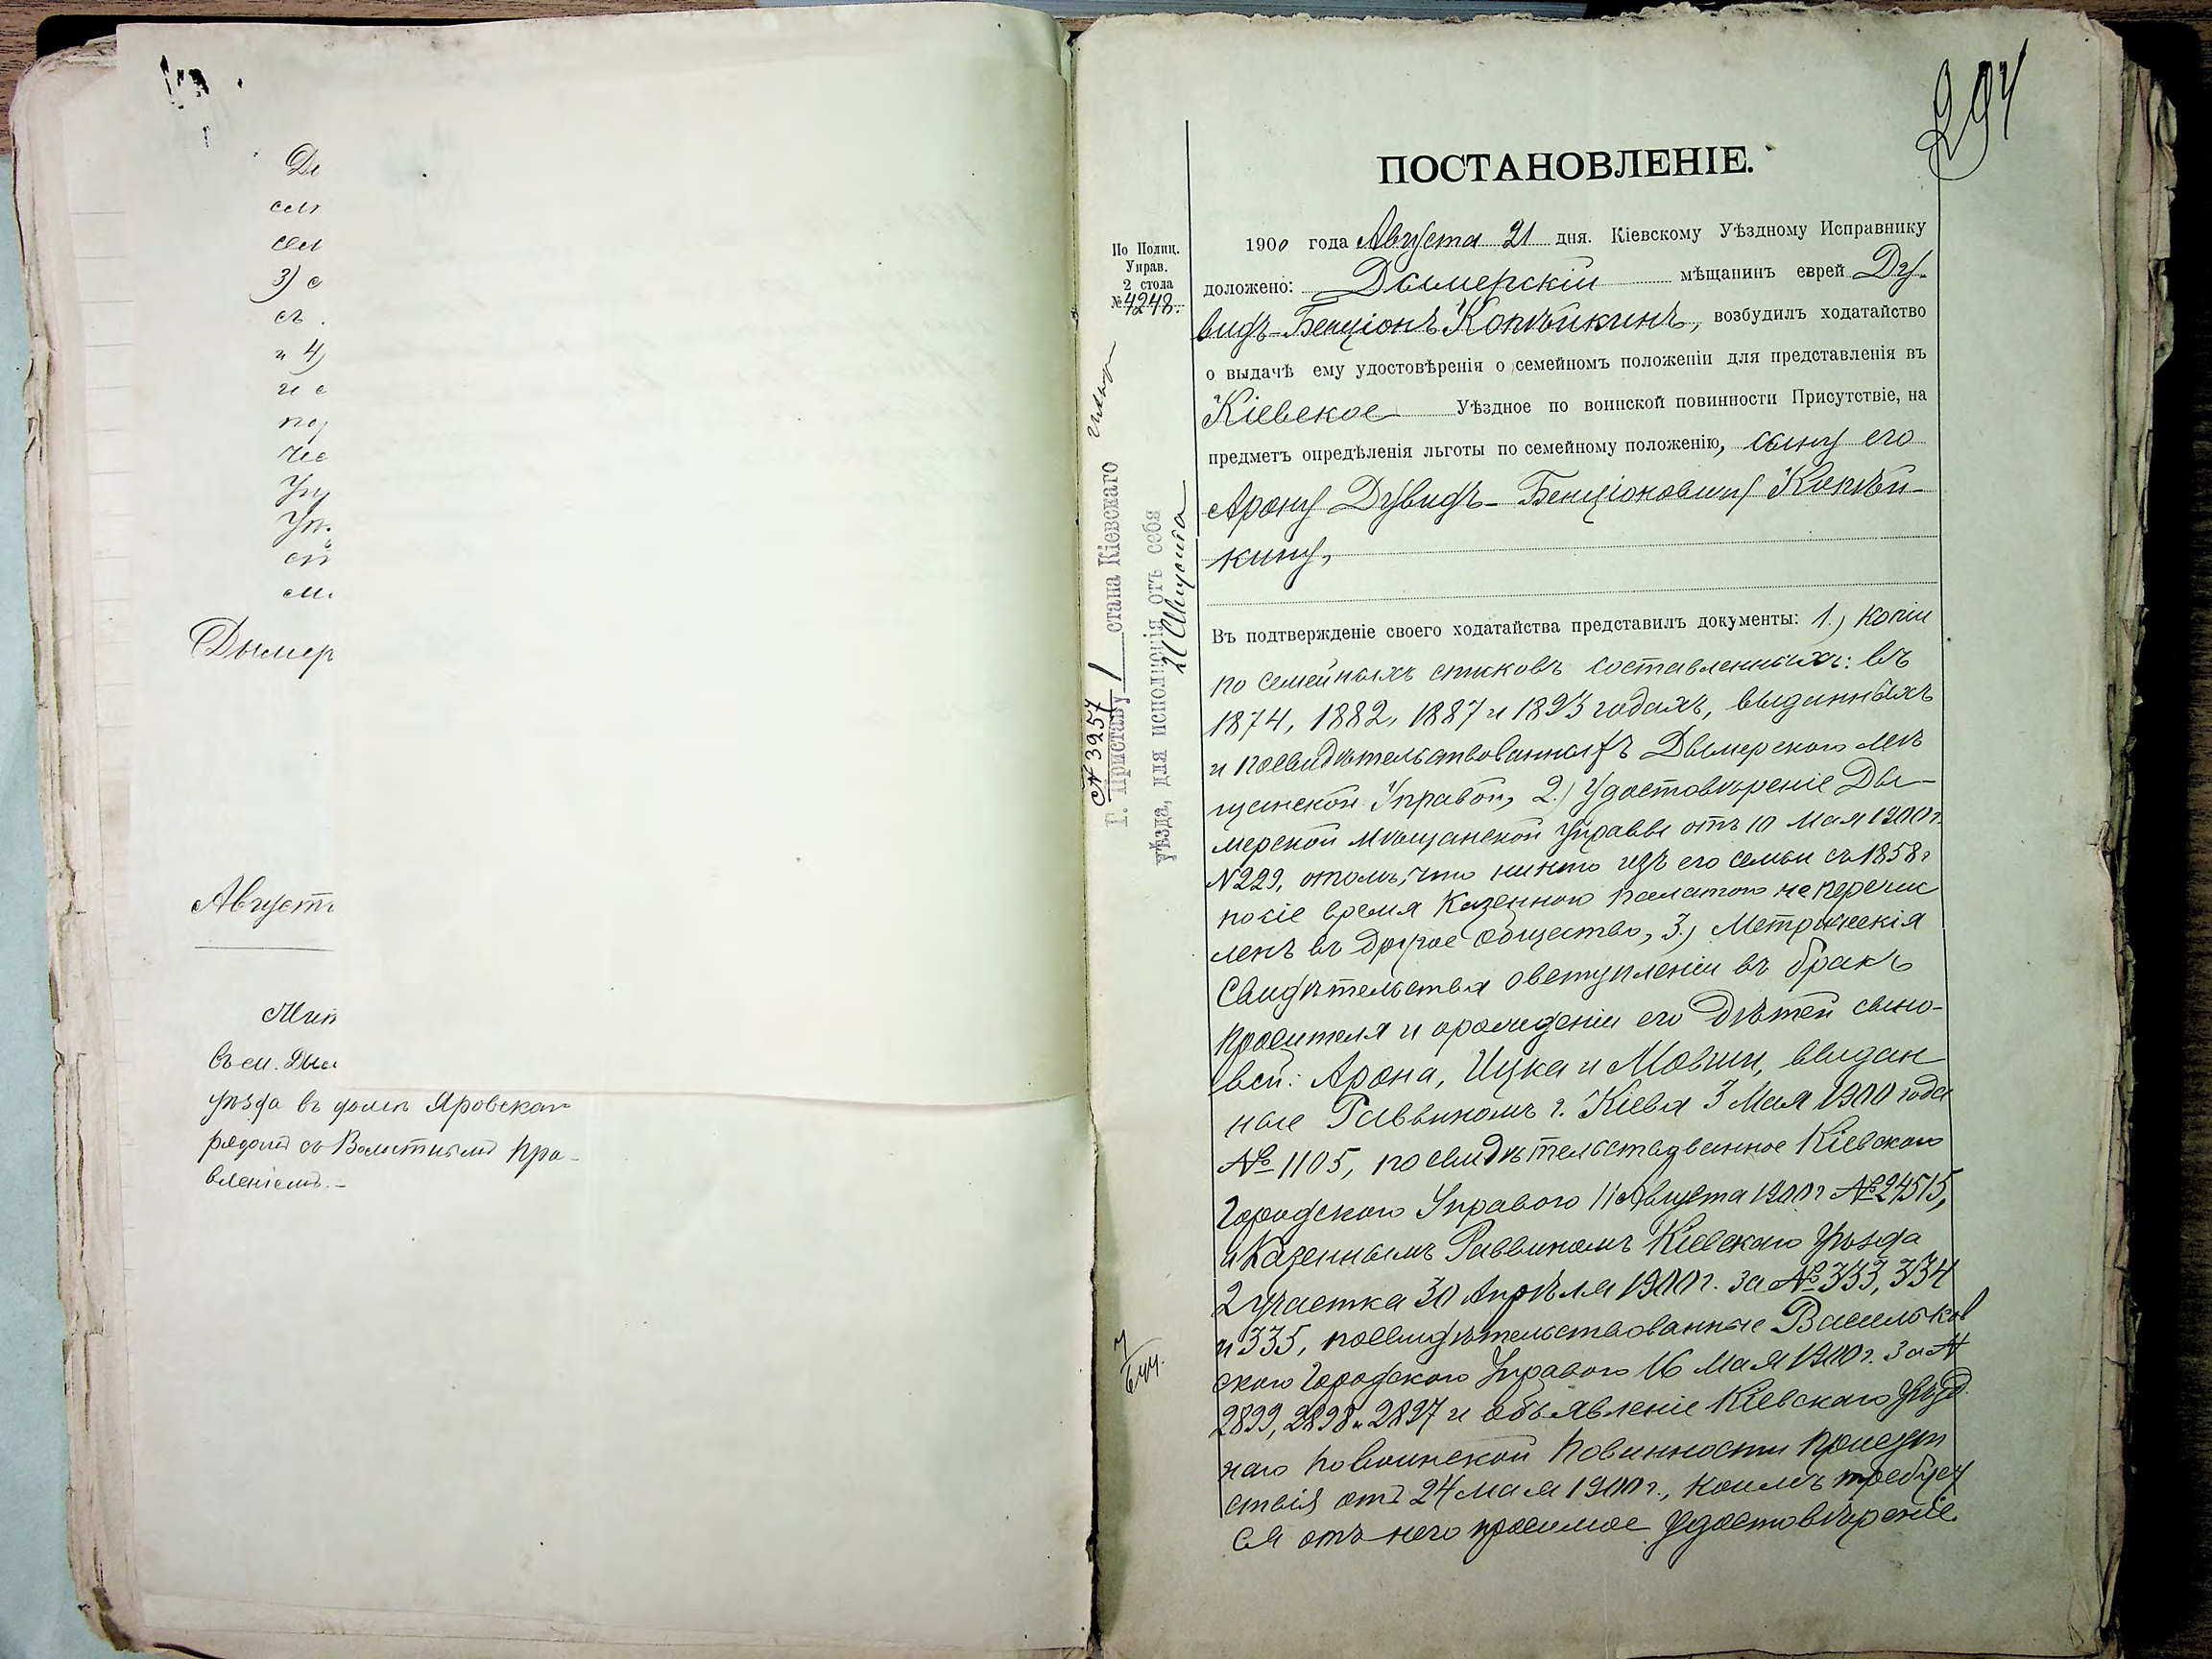 Де
сел
сел
3) с
съ
и 4)
и с
под
Чес
Упр
Уп.
сп
см.
Дымер
Августа
Жит
въ м. Дым
уѣзда въ домѣ Яровскаго
рядомъ съ Волостнымъ Пра-
вленіемъ.-
294
ПОСТАНОВЛЕНІЕ.
По Полиц.
Управ.
2 стола
№ 4248.
1900 года Августа 21 дня. Кіевскому Уѣздному Исправнику
доложено: Дымерскій мѣщанинъ еврей Ду-
видъ-Бенціонъ Копѣйкинъ, возбудилъ ходатайство
о выдачѣ ему удостовѣренія о семейномъ положеніи для представленія въ
Кіевское Уѣздное по воинской повинности Присутствіе, на
предметъ опредѣленія льготы по семейному положенію, сыну его
Арону Дувидъ-Бенціоновичу Копѣй-
кину,
Въ подтвержденіе своего ходатайства представилъ документы: 1.) копіи
посемейныхъ списковъ составленныхъ: въ
1874, 1882, 1887 и 1893 годахъ, выданныхъ
и посвидѣтельствованныхъ Дымерскою мѣ
щанской Управой, 2.) Удостовѣреніе Ды-
мерской мѣщанской Управы отъ 10 Мая 1900 г.
№ 229, о томъ, что никто изъ его семьи съ 1858 г
по сіе время Казенною палатою не перечис
ленъ въ другое общество, 3.) Метрическія
Свидѣтельства о вступленіи въ бракъ
просителя и о рожденіи его дѣтей сыно-
вей: Арона, Ицка и Мовши, выдан
ные Раввиномъ г. Кіева 3 Мая 1900 года
№ 1105, посвидѣтельствованное Кіевскою
Городскою Управою 11 Августа 1900 г № 24515,
и Казеннымъ Раввиномъ Кіевскаго Уѣзда
2 участка 30 Апрѣля 1900 г. за № 333, 334
и 335, посвидѣтельствованные Васильков
скою Городскою Управою 16 Мая 1900 г. за №
2899, 2898 и 2897 и объявленіе Кіевскаго Уѣзд
наго по воинской повинности Присут
ствія отъ 24 мая 1900 г., коимъ требует
ся отъ него просимое удостовѣреніе.
№ 3257
Г. Приставу 1 стана Кіевскаго
уѣзда, для исполненія отъ себя
21 Августа